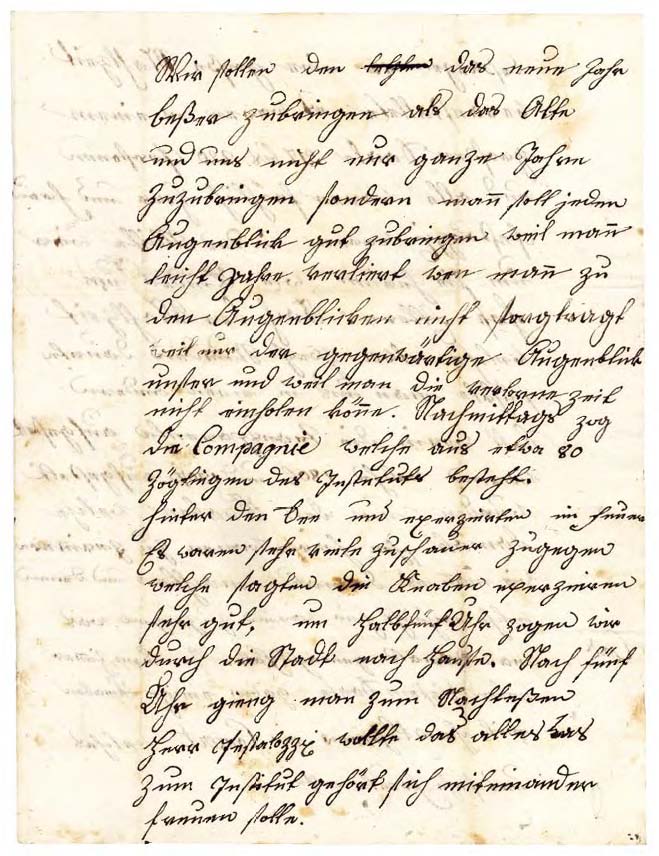 Wir sollen den letzten das neue Jahr
beßer zubringen als das Alte
und uns nicht nur ganze Jahre
zuzubringen sondern mañ soll jeden
Augenblick gut zubringen weil mañ
leicht Jahre verliert wen mañ zu
den Augenblicken nicht sorgtragt
weil nur der gegenwärtige Augenblick
unser und weil man die verlorne Zeit
nicht einholen köñe. Nachmittags zog
die Compagnie welche aus etwa 80
Zöglingen des Instituts besteht.
hinter den See und exerzierten im feuer
Es waren sehr viele Zuschauer zugegen
welche sagten die Knaben exerzieren
sehr gut, um halbfünf Uhr zogen wir
durch die Stadt nach Hause. Nach fünf
Uhr gieng man zum Nachteßen
Herr Pestalozzi wollte das alles was
zum Institut gehört sich miteinander
freuen solle.